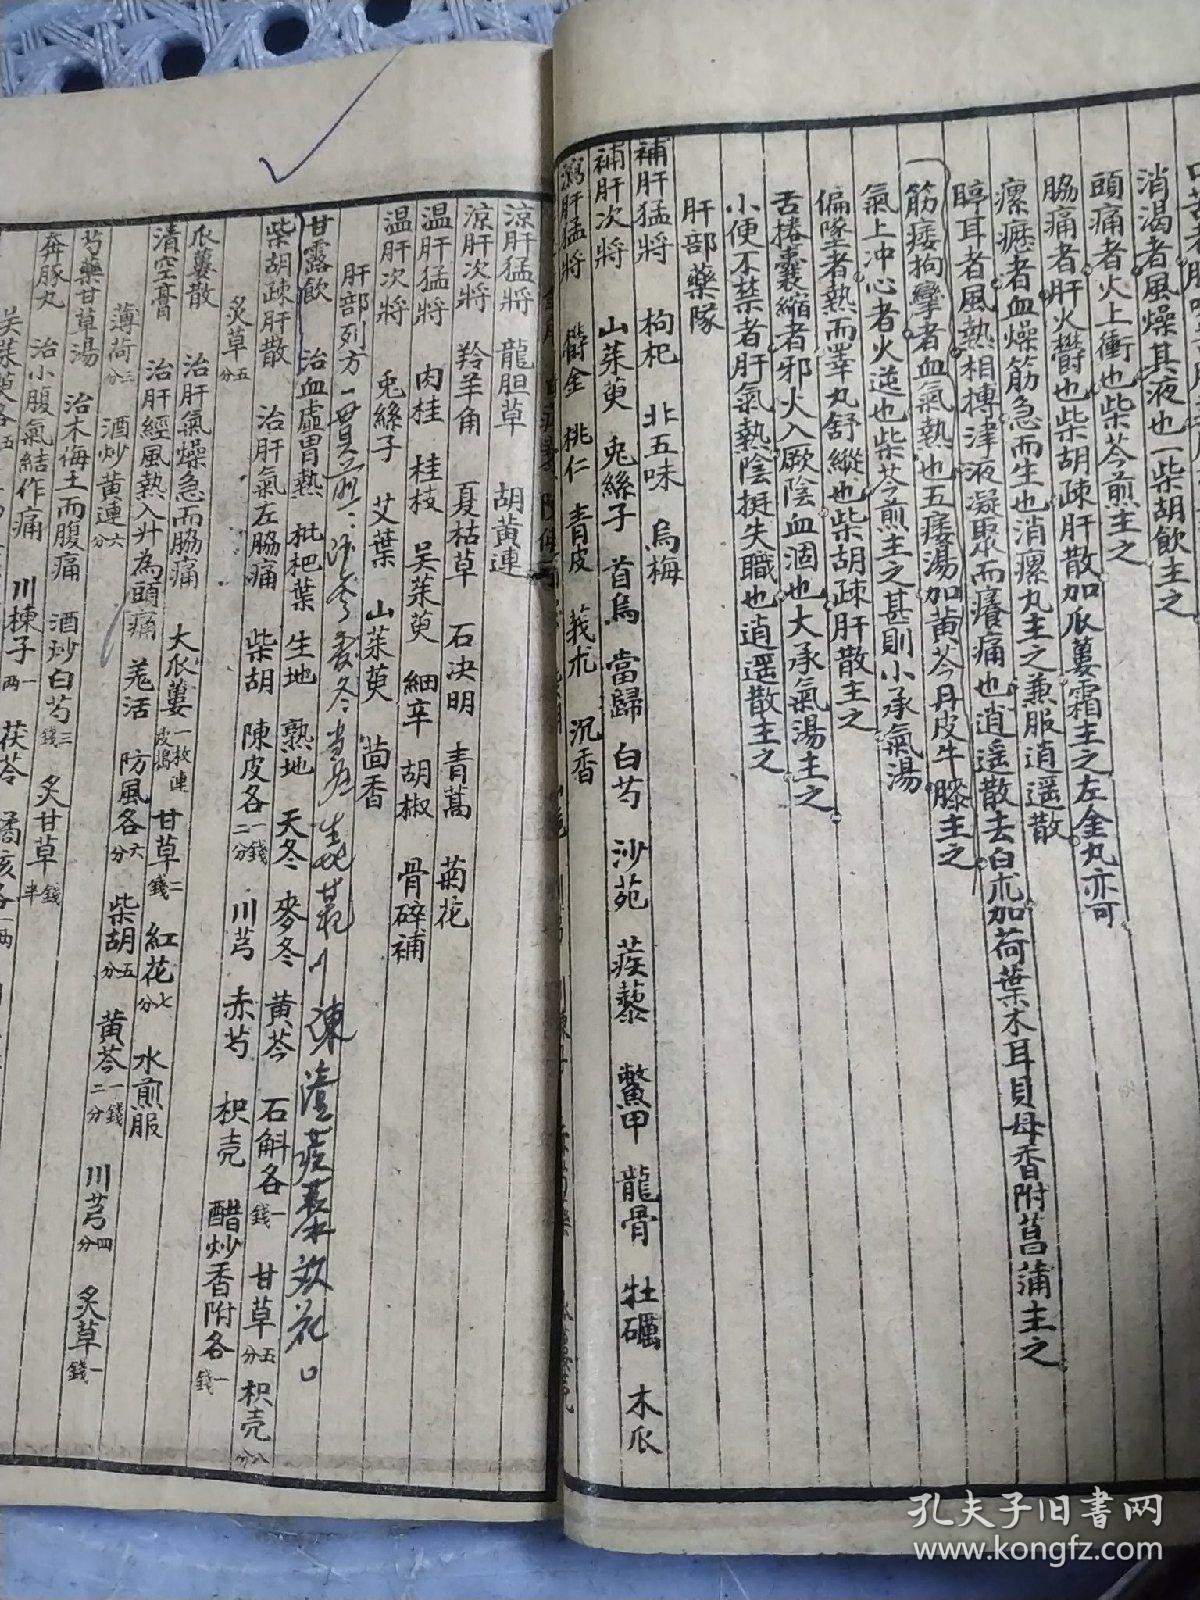 消渴者風燥其液也一柴胡飲主之
頭痛者火上衝也柴芩煎主之
脇痛者肝火鬱也柴胡疎肝散加瓜蔞霜主之左金丸亦可
瘰癧者血燥筋急而生也消瘰丸主之兼服逍遥散
聤耳者風熱相搏津液凝聚而癢痛也逍遥散去白朮加荷葉木耳貝母香附菖蒲主之
筋痿拘攣者血氣熱也五痿湯加黄芩丹皮牛膝主之
氣上冲心者火逆也柴芩煎主之甚則小承氣湯
偏墜者熱而睪丸舒縱也柴胡疎肝散主之
舌捲囊縮者邪火入厥陰血涸也大承氣湯主之
小便不禁者肝氣熱陰挺失職也逍遥散主之
肝部藥隊
補肝猛將 枸杞 北五味 烏梅
補肝次將 山茱萸 兎絲子 首烏 當歸 白芍 沙苑 蒺藜 鱉甲 龍骨 牡礪 木瓜
瀉肝猛將 欝金 桃仁 青皮 莪朮 沉香
涼肝猛將 龍胆草 胡黃連
涼肝次將 羚羊角 夏枯草 石決明 青蒿 菊花
温肝猛將 肉桂 桂枝 吴茱萸 細辛 胡椒 骨碎補
温肝次將 兎絲子 艾葉 山茱萸 茴香
肝部列方
甘露飲 治血虛胃熱 枇杷葉 生地 熟地 天冬 麥冬 黄芩 石斛各一錢 甘草五分 枳壳八分
柴胡疎肝散 治肝氣左脇痛 柴胡 陳皮各一錢二分 川芎 赤芍 枳壳 醋炒香附各一錢
炙草五分
瓜蔞散 治肝氣燥急而脇痛 大瓜蔞一枚連皮搗 甘草二錢 紅花七分 水煎服
清空膏 治肝經風熱入升為頭痛 羌活 防風各六分 柴胡五分 黄芩一錢二分 川芎四分 炙草一錢
薄荷三分 酒炒黄連六分
芍藥甘草湯 治木侮土而腹痛 酒炒白芍三錢 炙甘草錢半
奔豚丸 治小腹氣結作痛 川楝子一兩 茯苓 橘核各一兩
孔夫子旧书网
www.kongfz.com